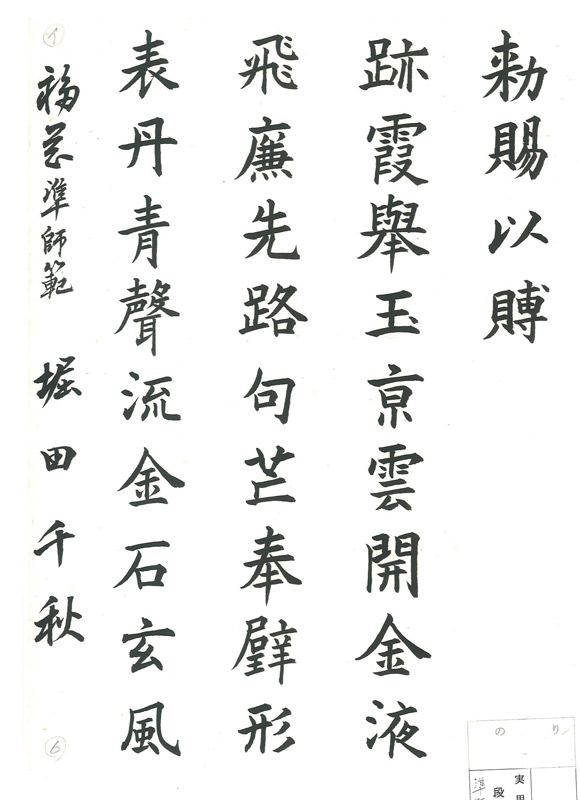 勑賜以賻
跡霞舉玉亰雲開金液
飛廉先路句芒奉璧形
表丹青聲流金石玄風
福準師範 堀田千秋
⑥
のり
実用
段
準